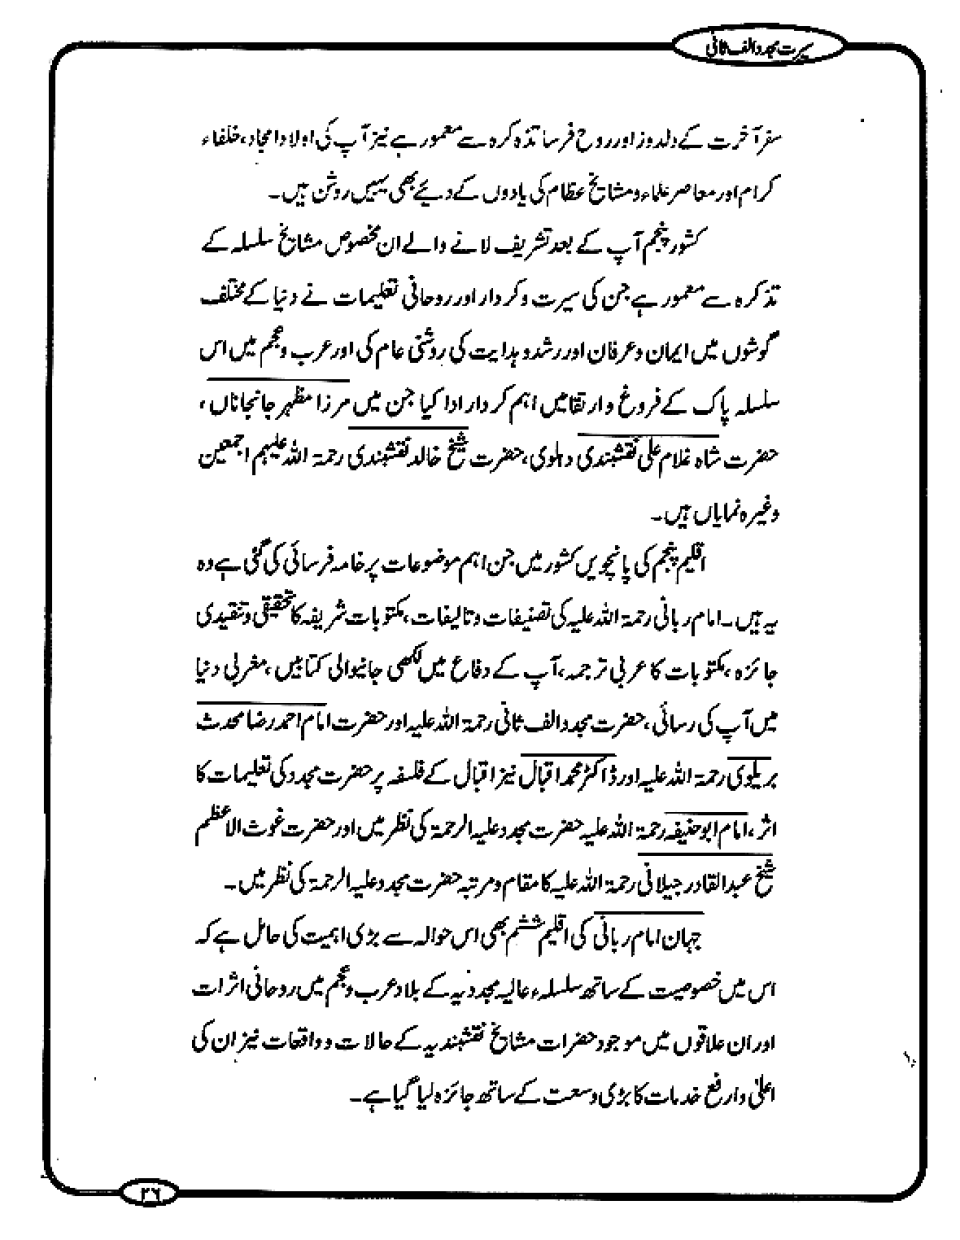 سیرت مجدد الف ثانی
سفر آخرت کے دلدوز اور روح فرسا تذکرہ سے معمور ہے نیز آپ کی اولاد امجاد، خلفاء
کرام اور معاصر علماء و مشایخ عظام کی یادوں کے دیئے بھی یہیں روشن ہیں۔
کشور پنجم آپ کے بعد تشریف لانے والے ان مخصوص مشایخ سلسلہ کے
تذکرہ سے معمور ہے جن کی سیرت و کردار اور روحانی تعلیمات نے دنیا کے مختلف
گوشوں میں ایمان و عرفان اور رشد و ہدایت کی روشنی عام کی اور عرب و عجم میں اس
سلسلہ پاک کے فروغ و ارتقا میں اہم کردار ادا کیا جن میں مرزا مظہر جانجاناں،
حضرت شاہ غلام علی نقشبندی دہلوی، حضرت شیخ خالد نقشبندی رحمۃ اللہ علیہم اجمعین
وغیرہ نمایاں ہیں۔
اقلیم پنجم کی پانچویں کشور میں جن اہم موضوعات پر خامہ فرسائی کی گئی ہے وہ
یہ ہیں۔ امام ربانی رحمۃ اللہ علیہ کی تصنیفات و تالیفات، مکتوبات شریفہ کا تحقیقی و تنقیدی
جائزہ، مکتوبات کا عربی ترجمہ، آپ کے دفاع میں لکھی جانیوالی کتابیں، مغربی دنیا
میں آپ کی رسائی، حضرت مجدد الف ثانی رحمۃ اللہ علیہ اور حضرت امام احمد رضا محدث
بریلوی رحمۃ اللہ علیہ اور ڈاکٹر محمد اقبال نیز اقبال کے فلسفہ پر حضرت مجدد کی تعلیمات کا
اثر، امام ابو حنیفہ رحمۃ اللہ علیہ حضرت مجدد علیہ الرحمۃ کی نظر میں اور حضرت غوث الاعظم
شیخ عبدالقادر جیلانی رحمۃ اللہ علیہ کا مقام و مرتبہ حضرت مجدد علیہ الرحمۃ کی نظر میں۔
جہان امام ربانی کی اقلیم ششم بھی اس حوالہ سے بڑی اہمیت کی حامل ہے کہ
اس میں خصوصیت کے ساتھ سلسلہء عالیہ مجددیہ کے بلاد عرب و عجم میں روحانی اثرات
اور ان علاقوں میں موجود حضرات مشایخ نقشبندیہ کے حالات و واقعات نیز ان کی
اعلیٰ و ارفع خدمات کا بڑی وسعت کے ساتھ جائزہ لیا گیا ہے۔
۳۶